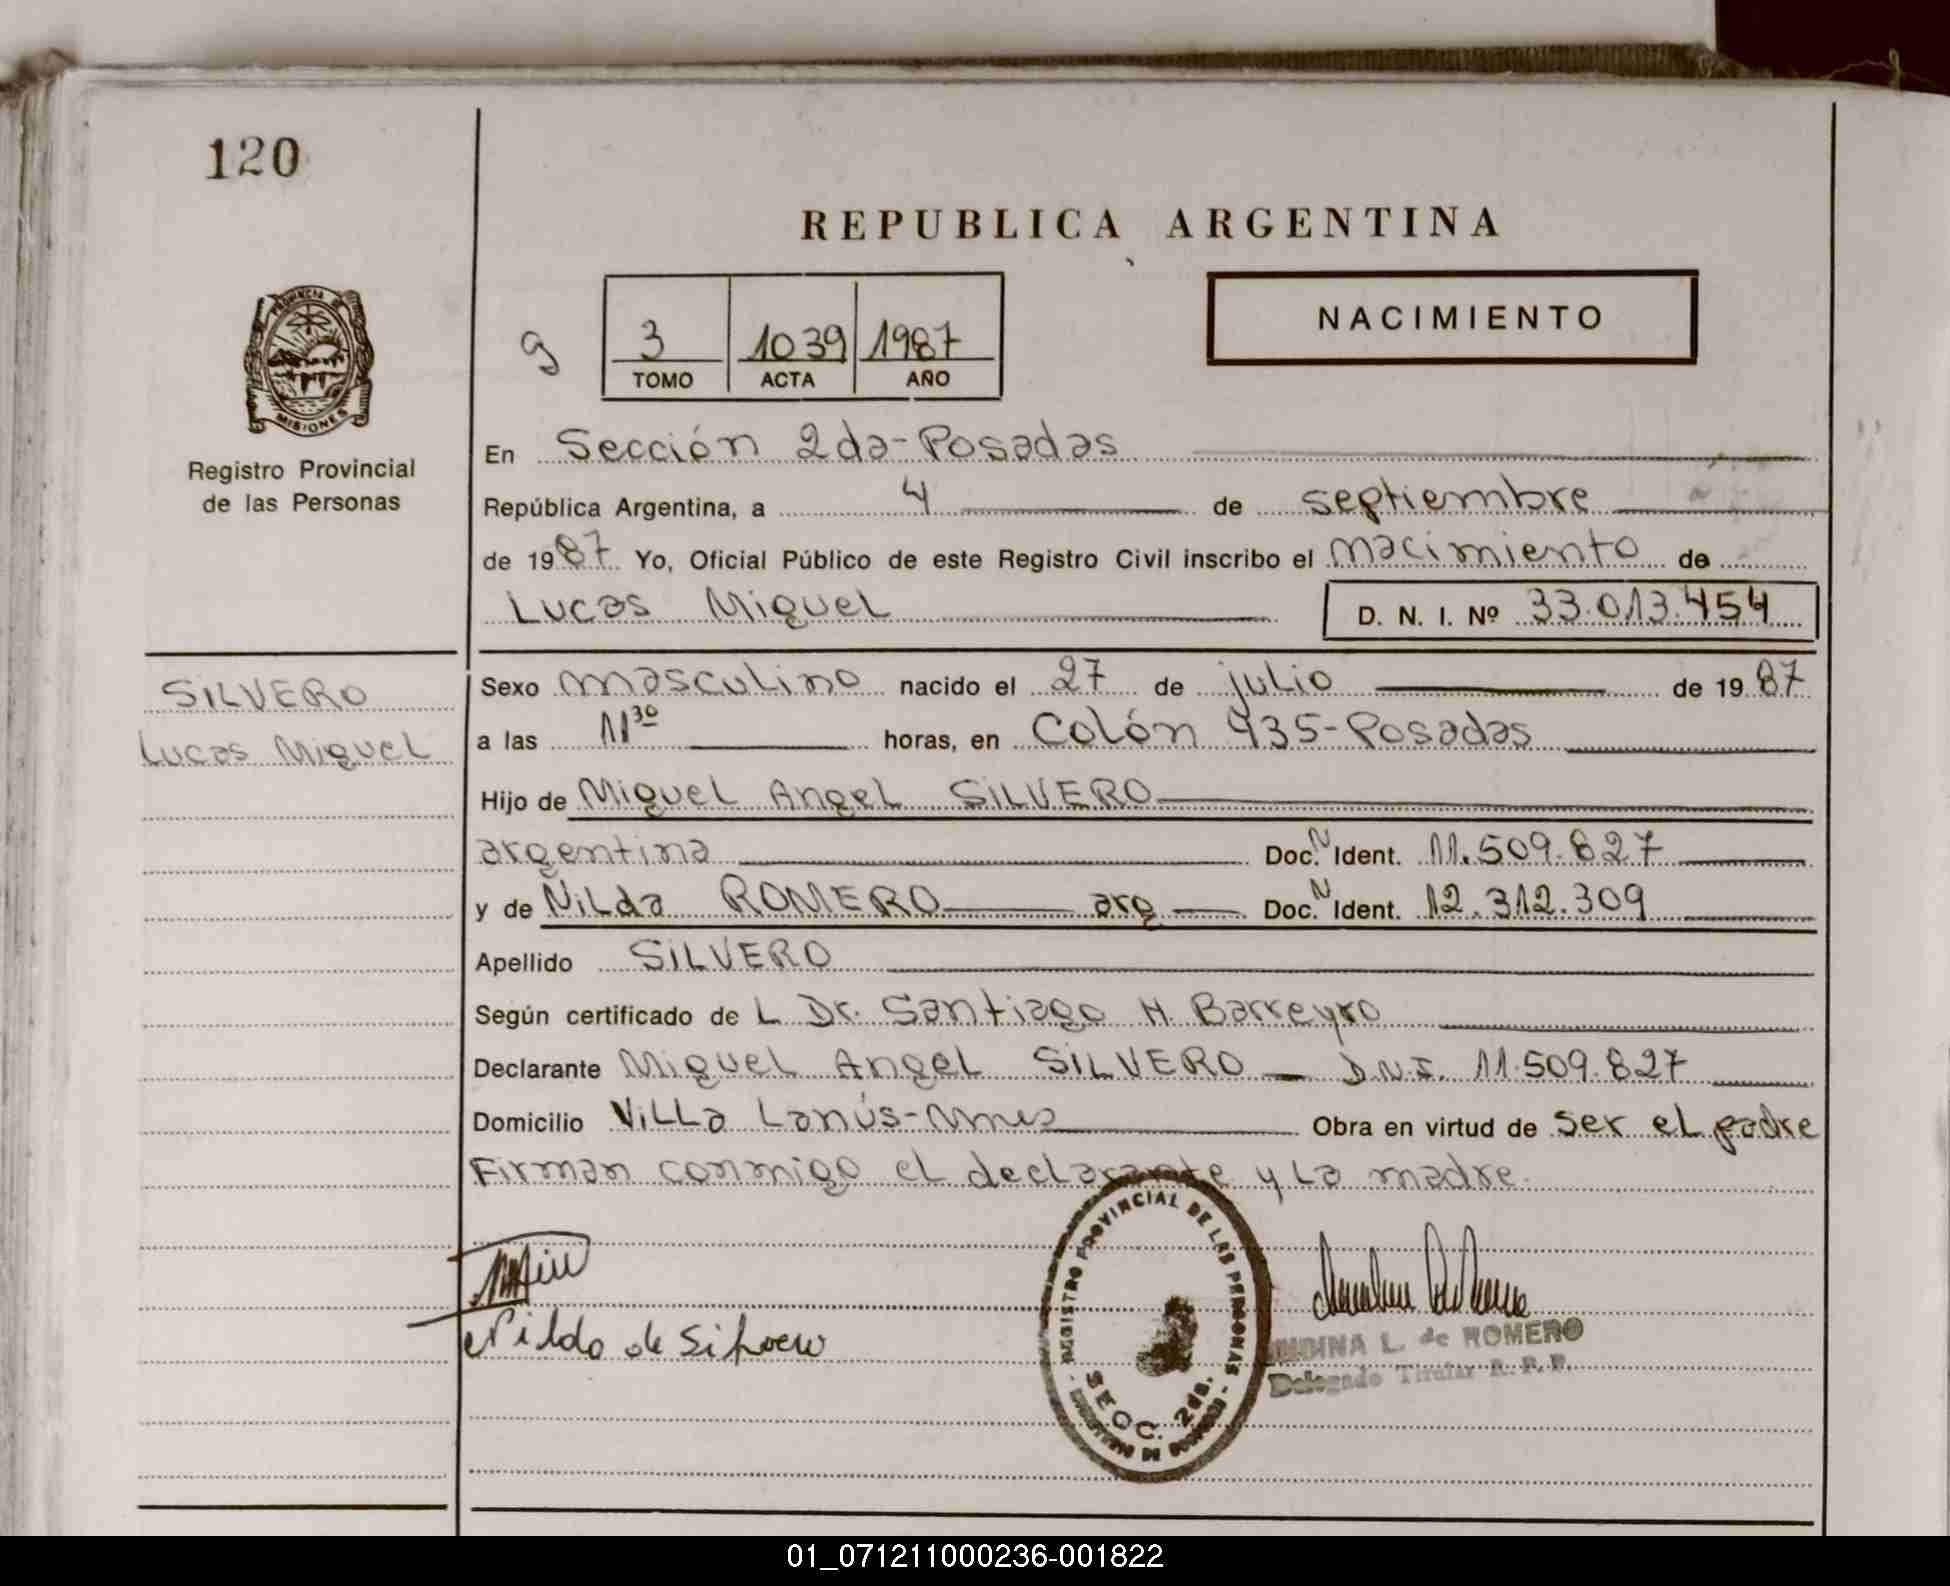 120
REPUBLICA ARGENTINA
PROVINCIA DE
MISIONES
Registro Provincial
de las Personas
9
3 1039 1987
TOMO ACTA AÑO
NACIMIENTO
En Sección 2da-Posadas
República Argentina, a 4 de septiembre
de 1987 Yo, Oficial Público de este Registro Civil inscribo el nacimiento de
Lucas Miguel D. N. I. Nº 33.013.454
SILVERO
Lucas Miguel
Sexo masculino nacido el 27 de julio de 1987
a las 11³⁰ horas, en Colón 435-Posadas
Hijo de Miguel Angel SILVERO
argentina Doc. N Ident. 11.509.827
y de Nilda ROMERO arg Doc. N Ident. 12.312.309
Apellido SILVERO
Según certificado de L Dr. Santiago H. Barreyro
Declarante Miguel Angel SILVERO - D.N.I. 11.509.827
Domicilio Villa Lanús-Mnes Obra en virtud de ser el padre
Firman conmigo el declarante y la madre.
REGISTRO PROVINCIAL DE LAS PERSONAS
SECC. 2da.
Nilda de Silvero
L. de ROMERO
Delegado Titular R. P. P.
01_071211000236-001822